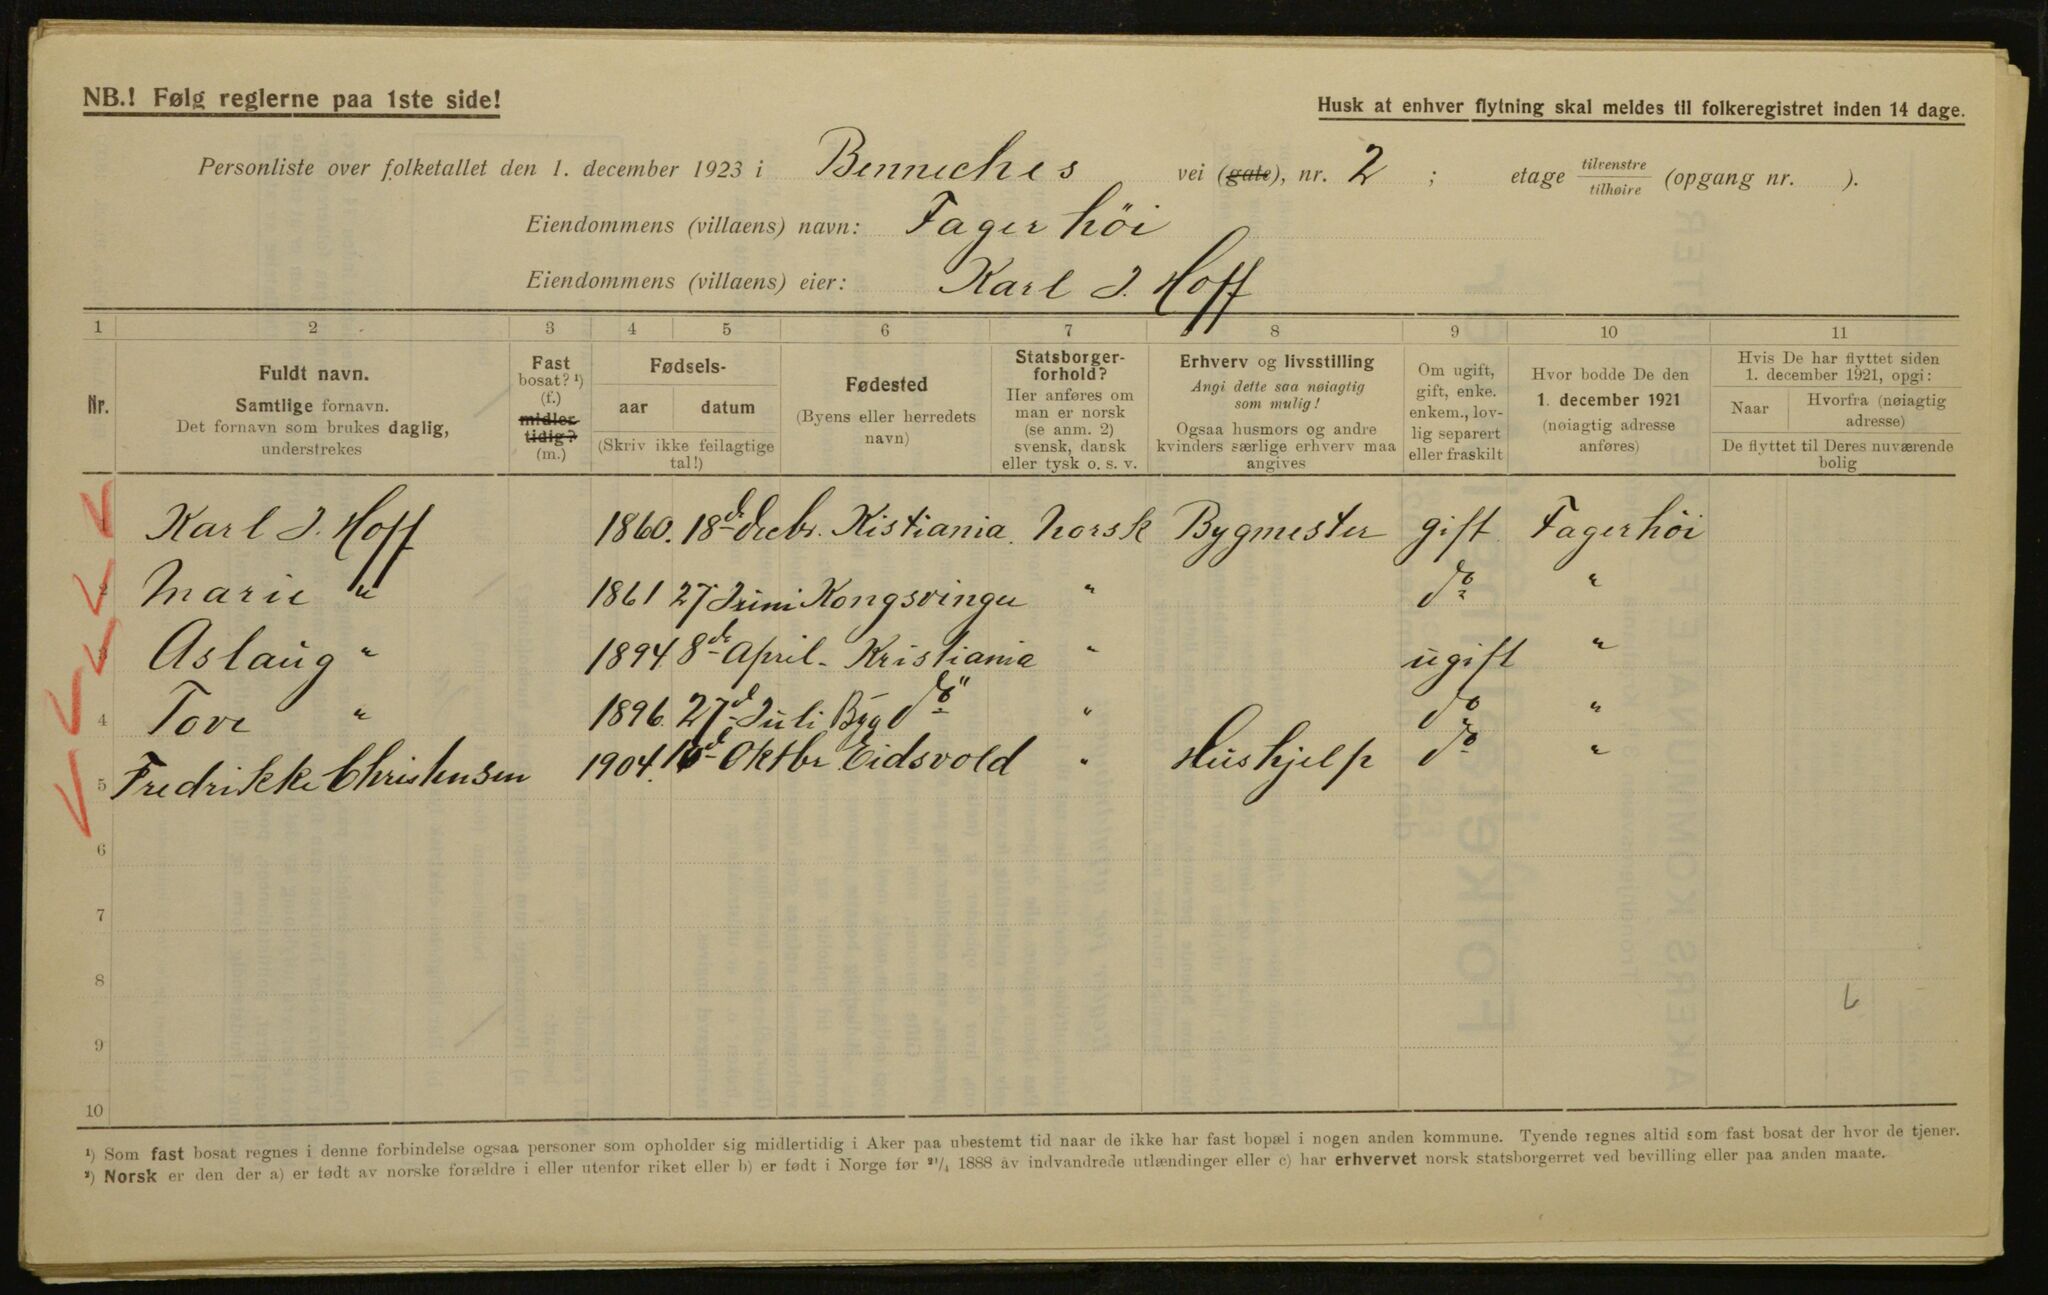 NB.! Følg reglerne paa 1ste side!
Husk at enhver flytning skal meldes til folkeregistret inden 14 dage.
Personliste over folketallet den 1. december 1923 i Benneches vei (gate), nr. 2 ; etage tilvenstre / tilhøire (opgang nr. ).
Eiendommens (villaens) navn: Fagerhöi
Eiendommens (villaens) eier: Karl J. Hoff
1 2 3 4 5 6 7 8 9 10 11
Nr.
Fuldt navn.
Samtlige fornavn.
Det fornavn som brukes daglig,
understrekes
Fast
bosat? ¹)
(f.)
midler-
tidig?
(m.)
Fødsels-
aar datum
(Skriv ikke feilagtige
tal!)
Fødested
(Byens eller herredets
navn)
Statsborger-
forhold?
Her anføres om
man er norsk
(se anm. 2)
svensk, dansk
eller tysk o. s. v.
Erhverv og livsstilling
Angi dette saa nøiagtig
som mulig!
Ogsaa husmors og andre
kvinders særlige erhverv maa
angives
Om ugift,
gift, enke.
enkem., lov-
lig separert
eller fraskilt
Hvor bodde De den
1. december 1921
(nøiagtig adresse
anføres)
Hvis De har flyttet siden
1. december 1921, opgi:
Naar
Hvorfra (nøiagtig
adresse)
De flyttet til Deres nuværende
bolig
1 Karl J. Hoff 1860. 18de decbr. Kistiania. Norsk Bygmester gift Fagerhöi
2 Marie " 1861 27 Juni Kongsvinger " do "
3 Aslaug " 1894 8de April - Kristiania " ugift "
4 Tove " 1896. 27d Juli do" " do "
5 Fredrikke Christensen 1904. Oktbr Eidsvold " Hushjelp do "
6
7
8
9
10
¹) Som fast bosat regnes i denne forbindelse ogsaa personer som opholder sig midlertidig i Aker paa ubestemt tid naar de ikke har fast bopæl i nogen anden kommune. Tyende regnes altid som fast bosat der hvor de tjener.
²) Norsk er den der a) er født av norske forældre i eller utenfor riket eller b) er født i Norge før ²¹/₄ 1888 av indvandrede utlændinger eller c) har erhvervet norsk statsborgerret ved bevilling eller paa anden maate.